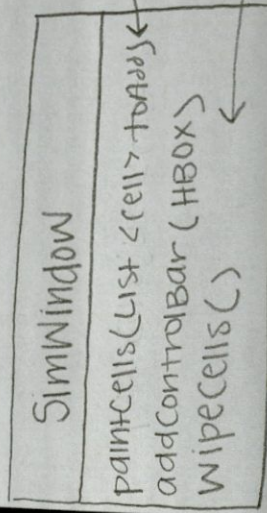 SimWindow
paintCells(List <Cell> toAdd)
addControlBar (HBOX)
wipeCells()